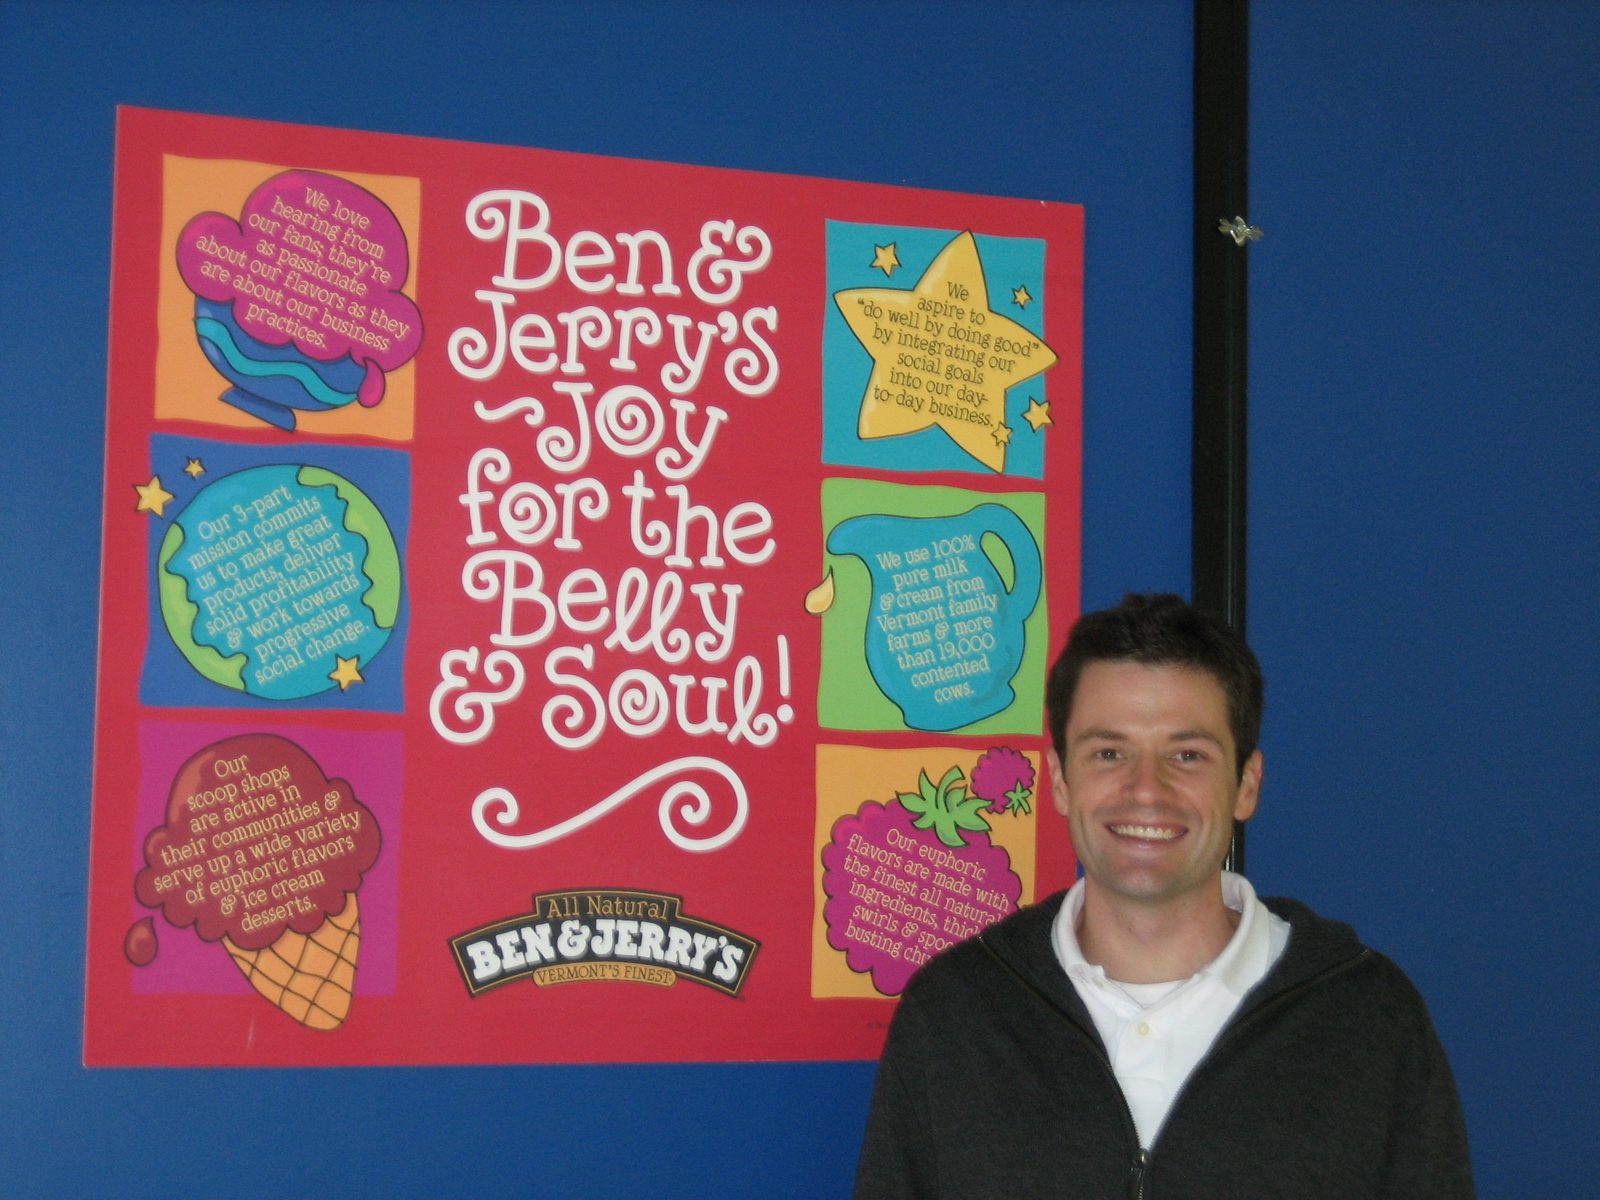 We love
hearing from
our fans; they're
as passionate
about our flavors as they
are about our business
practices.
Our 3-part
mission commits
us to make great
products, deliver
solid profitability
& work towards
progressive
social change.
Our
scoop shops
are active in
their communities &
serve up a wide variety
of euphoric flavors
& ice cream
desserts.
Ben &
Jerry's
~Joy
for the
Belly
& Soul!
All Natural
BEN & JERRY'S
VERMONT'S FINEST
We
aspire to
"do well by doing good"
by integrating our
social goals
into our day-
to-day business.
We use 100%
pure milk
& cream from
Vermont family
farms & more
than 19,000
contented
cows.
Our euphoric
flavors are made with
the finest all natural
ingredients,
swirls &
busting